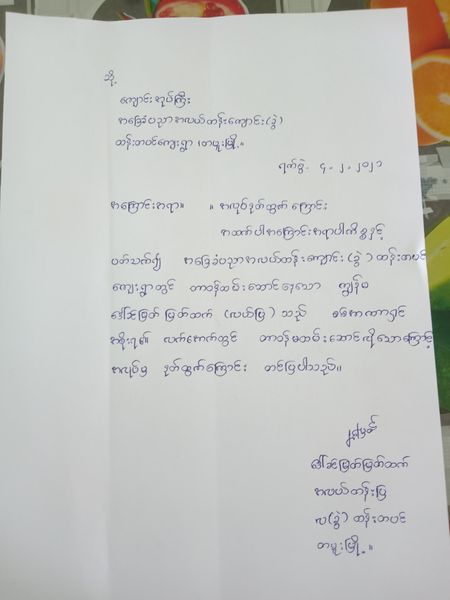 သို့
ကျောင်းအုပ်ကြီး
အခြေခံပညာအလယ်တန်းကျောင်း(ခွဲ)
ထန်းတပင်ကျေးရွာ၊ တမူးမြို့။
ရက်စွဲ- ၄-၂-၂၀၂၁
အကြောင်းအရာ။ ။ အလုပ်နုတ်ထွက်ကြောင်း
အထက်ပါအကြောင်းအရာပါကိစ္စနှင့်
ပတ်သက်၍ အခြေခံပညာအလယ်တန်းကျောင်း(ခွဲ)ထန်းတပင်
ကျေးရွာတွင် တာဝန်ထမ်းဆောင်နေသော ကျွန်မ
ဒေါ်ခင်မြတ်မြတ်ထက် (လယ်ပြ) သည် စစ်အာဏာရှင်
အစိုးရ၏ လက်အောက်တွင် တာဝန်မထမ်းဆောင်လိုသောကြောင့်
အလုပ်မှ နုတ်ထွက်ကြောင်း တင်ပြပါသည်။
ဒေါ်ခင်မြတ်မြတ်ထက်
အလယ်တန်းပြ
လ(ခွဲ) ထန်းတပင်
တမူးမြို့။